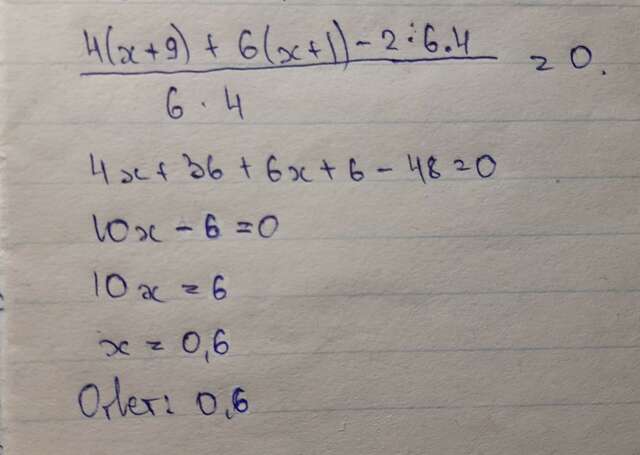 4(x+9) + 6(x+1) - 2·6·4 = 0.
6 · 4
4x + 36 + 6x + 6 - 48 = 0
10x - 6 = 0
10x = 6
x = 0,6
Ответ: 0,6